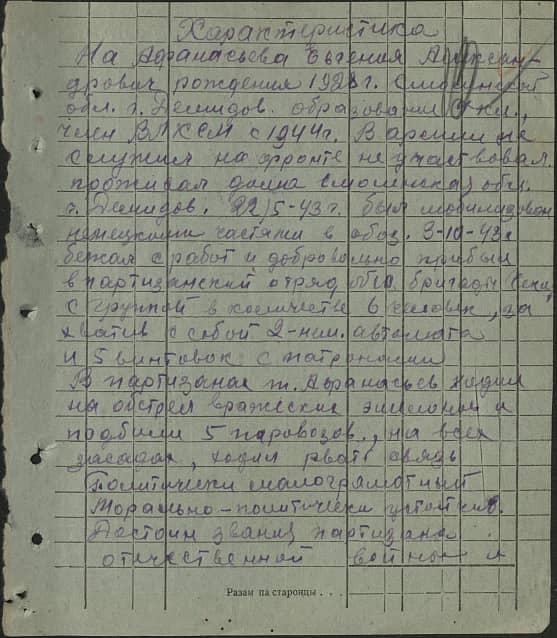 Характеристика
На Афанасьева Евгения Алексан-
дрович рождения 1928 г. Смоленской
обл. г. Демидов. образования 5 кл.,
член ВЛКСМ с 1944 г. В армии не
служил на фронте не участвовал.
проживал дома Смоленская обл.
г. Демидов. 22/5-43 г. был мобилизован
немецкими частями в обоз. 3-10-43 г
бежал с работ и добровольно прибыл
в партизанский отряд бригады
с группой в количестве 6 человек, за
хватив с собой 2-нем. автомата
и 5 винтовок с патронами
В партизанах т. Афанасьев ходил
на обстрел вражеских эшелонов и
подбили 5 паровозов, на всех
засадах, ходил рвать связь
Политически малограмотный
Морально-политически устойчив.
Достоин звания партизана
отечественной войны и
Разам па старонцы . . .